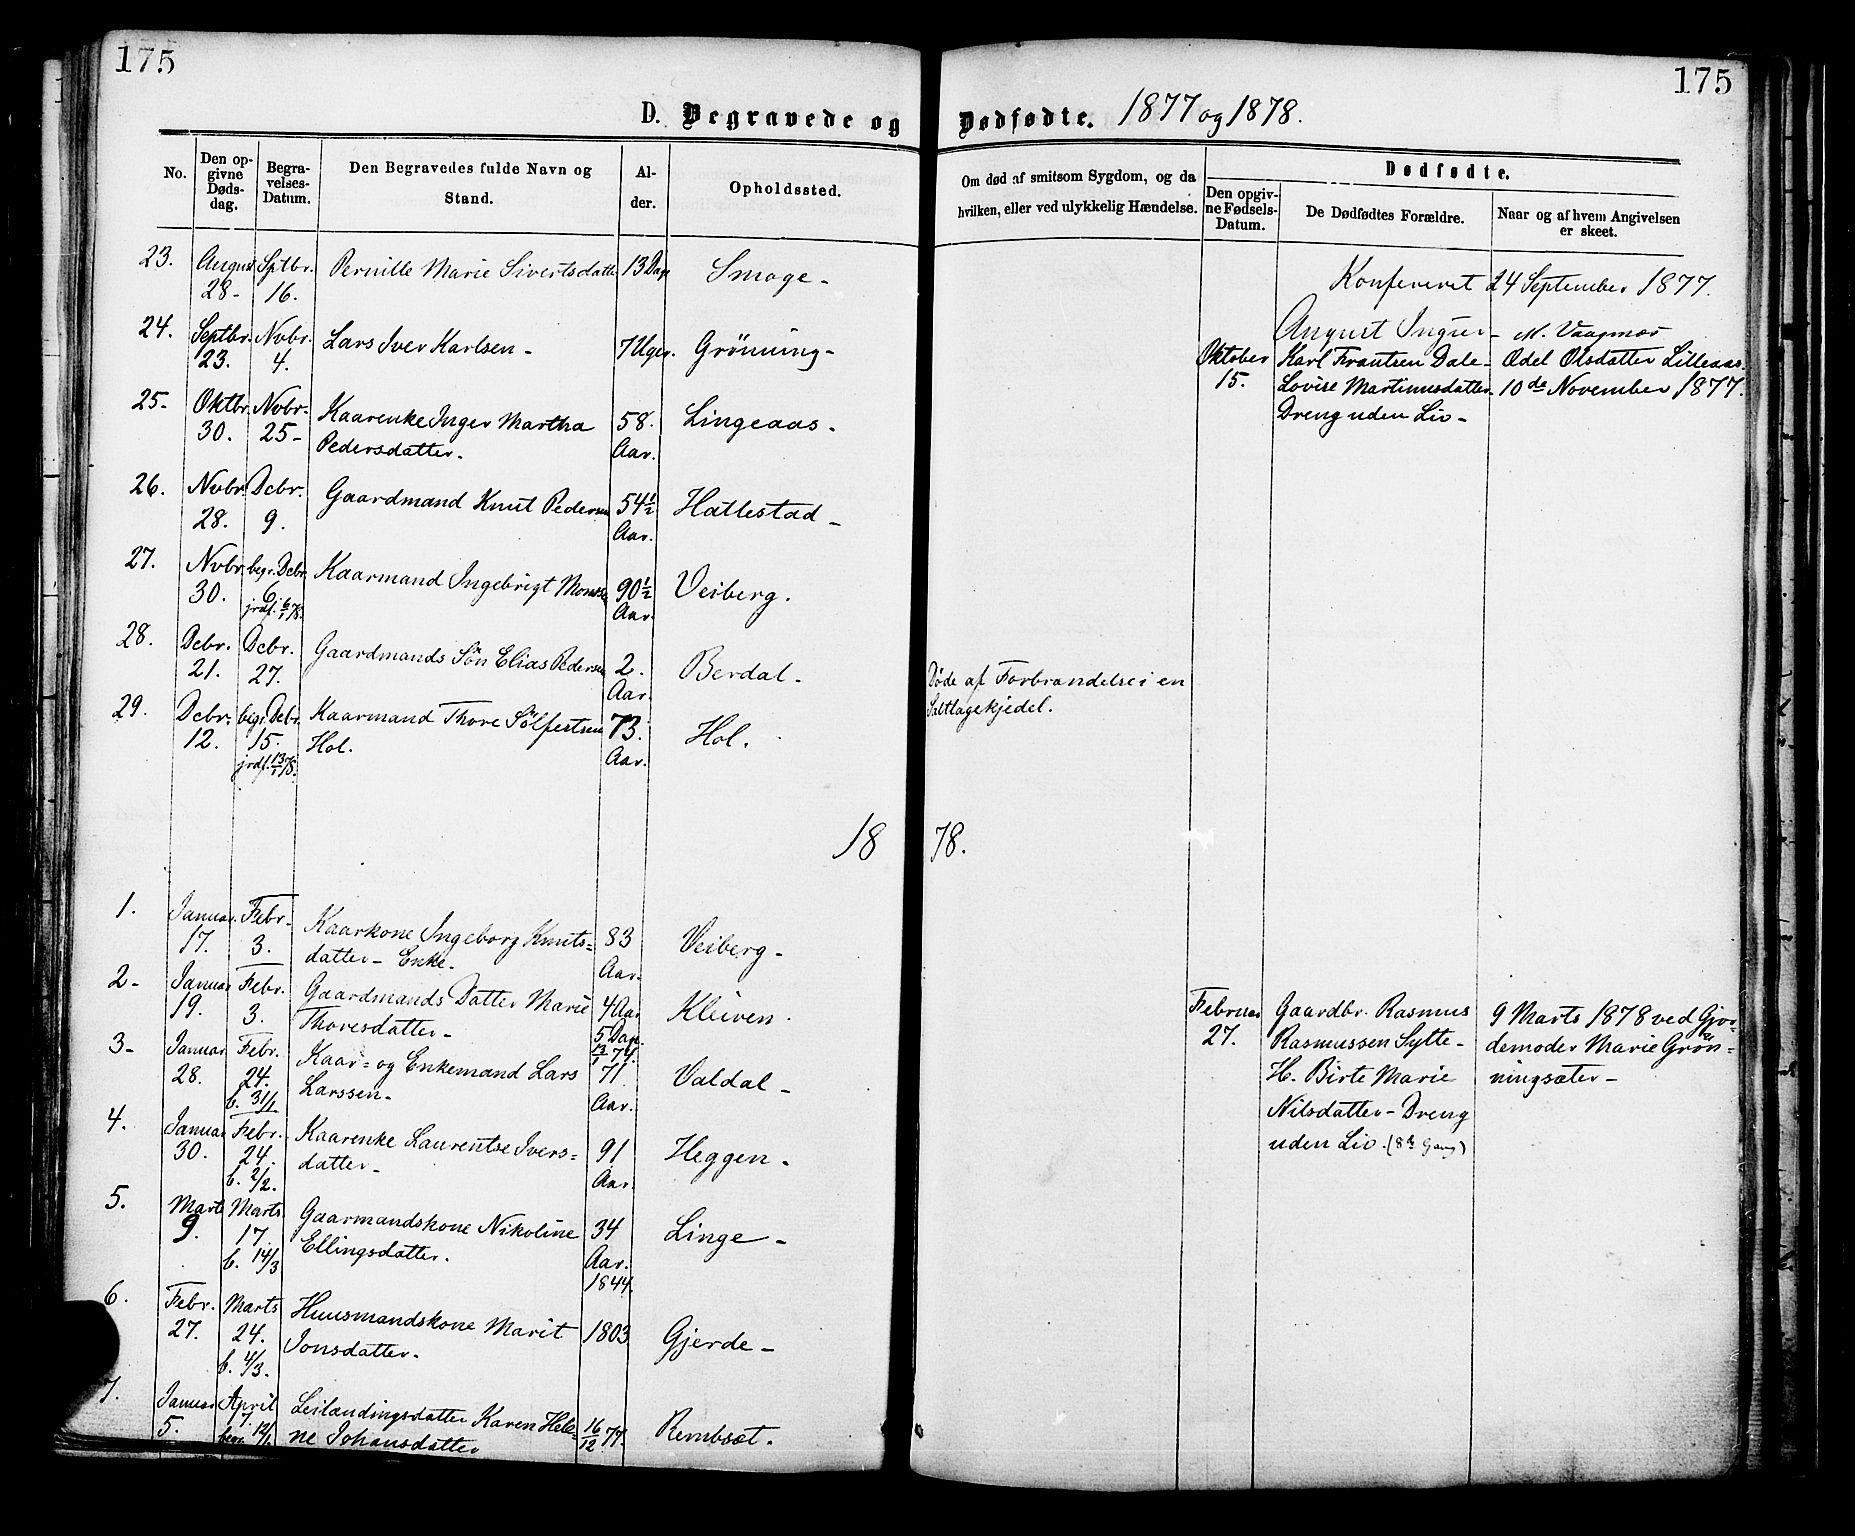 175
175
D. Begravede og Dødfødte. 1877 og 1878.
No.
Den opgivne Dødsdag.
Begravelses-Datum.
Den Begravedes fulde Navn og Stand.
Alder.
Opholdssted.
Om død af smitsom Sygdom, og da hvilken, eller ved ulykkelig Hændelse.
Dødfødte.
Den opgivne Fødsels-Datum.
De Dødfødtes Forældre.
Naar og af hvem Angivelsen er skeet.
23. August 28- Sptbr. 16. Pernille Marie Sivertsdatter 13 Dage Smoge-
Konfereret 24 September 1877.
August Inguer- M. Vaagmar
24. Septbr. 23. Novbr. 4. Lars Iver Karlsen- 7 Uger. Grönning-
Oktober 15. Karl Frantsen Dale- Ædel Olsdatter Lilleaas
Lovise Martinusdatter- 10de November 1877.
Dreng uden Liv-
25- Oktbr. 30. Novbr- 25- Kaarenke Inger Martha 58. Lingeaas.
Pedersdatter. Aar.
26. Novbr. 28. Dcbr. 9. Gaardmand Knut Pedersen 54½ Aar. Hattestad-
27. Novbr. 30. begr. Dcbr. 6. Kaarmand Ingebrigt Monsen 90½ Aar. Veiberg.
jrdf. 6/1 78.
28. Dcbr. 21. Dcbr. 27. Gaardmands Sön Elias Pedersen 2. Aar. Berdal-
Døde af Forbrandelse i en
Saltlagekjedel.
29. Dcbr. 12. begr. Dcbr. 15. Kaarmand Thore Sölfestsen 73. Hol.
Hol. Aar.
jrdf. 13/1 78.
1878.
1. Januar. 17. Febr- 3. Kaarkone Ingeborg Knuts= 83 Veiberg-
datter- Enke- Aar.
2- Januar 19. Febr. 3. Gaardmands Datter Marie 4 Aar Kleiven.
Thoresdatter- 5 Dage
13/1 74.
Februar 27. Gaardbr. Rasmus 9 Marts 1878 ved Gjor=
Rasmussen Sytte- demoder Marie Grøn=
H. Birte Marie ningsæter-
Nilsdatter- Dreng
uden Liv. (8de Gang)
3- Januar 28. Febr. 24. Kaar= og Enkemand Lars 71 Valdal-
b. 31/1 Larssen- Aar.
4. Januar 30. Febr. 24. Kaarenke Laurentse Ivers= 91 Heggen.
b. 2/2. datter- Aar.
5. Marts 9. Marts 17. Gaarmandskone Nikoline 34 Linge-
b. 14/3 Ellingsdatter. Aar.
1844.
6. Febr. 27. Marts 24. Huusmandskone Marit 1803 Gjerde-
b. 4/3. Jonsdatter.
7. Januar 5. April 7. Leilændingsdatter Karen Hele= 16/12 77. Rembsæt.
begr. ne Johansdatter